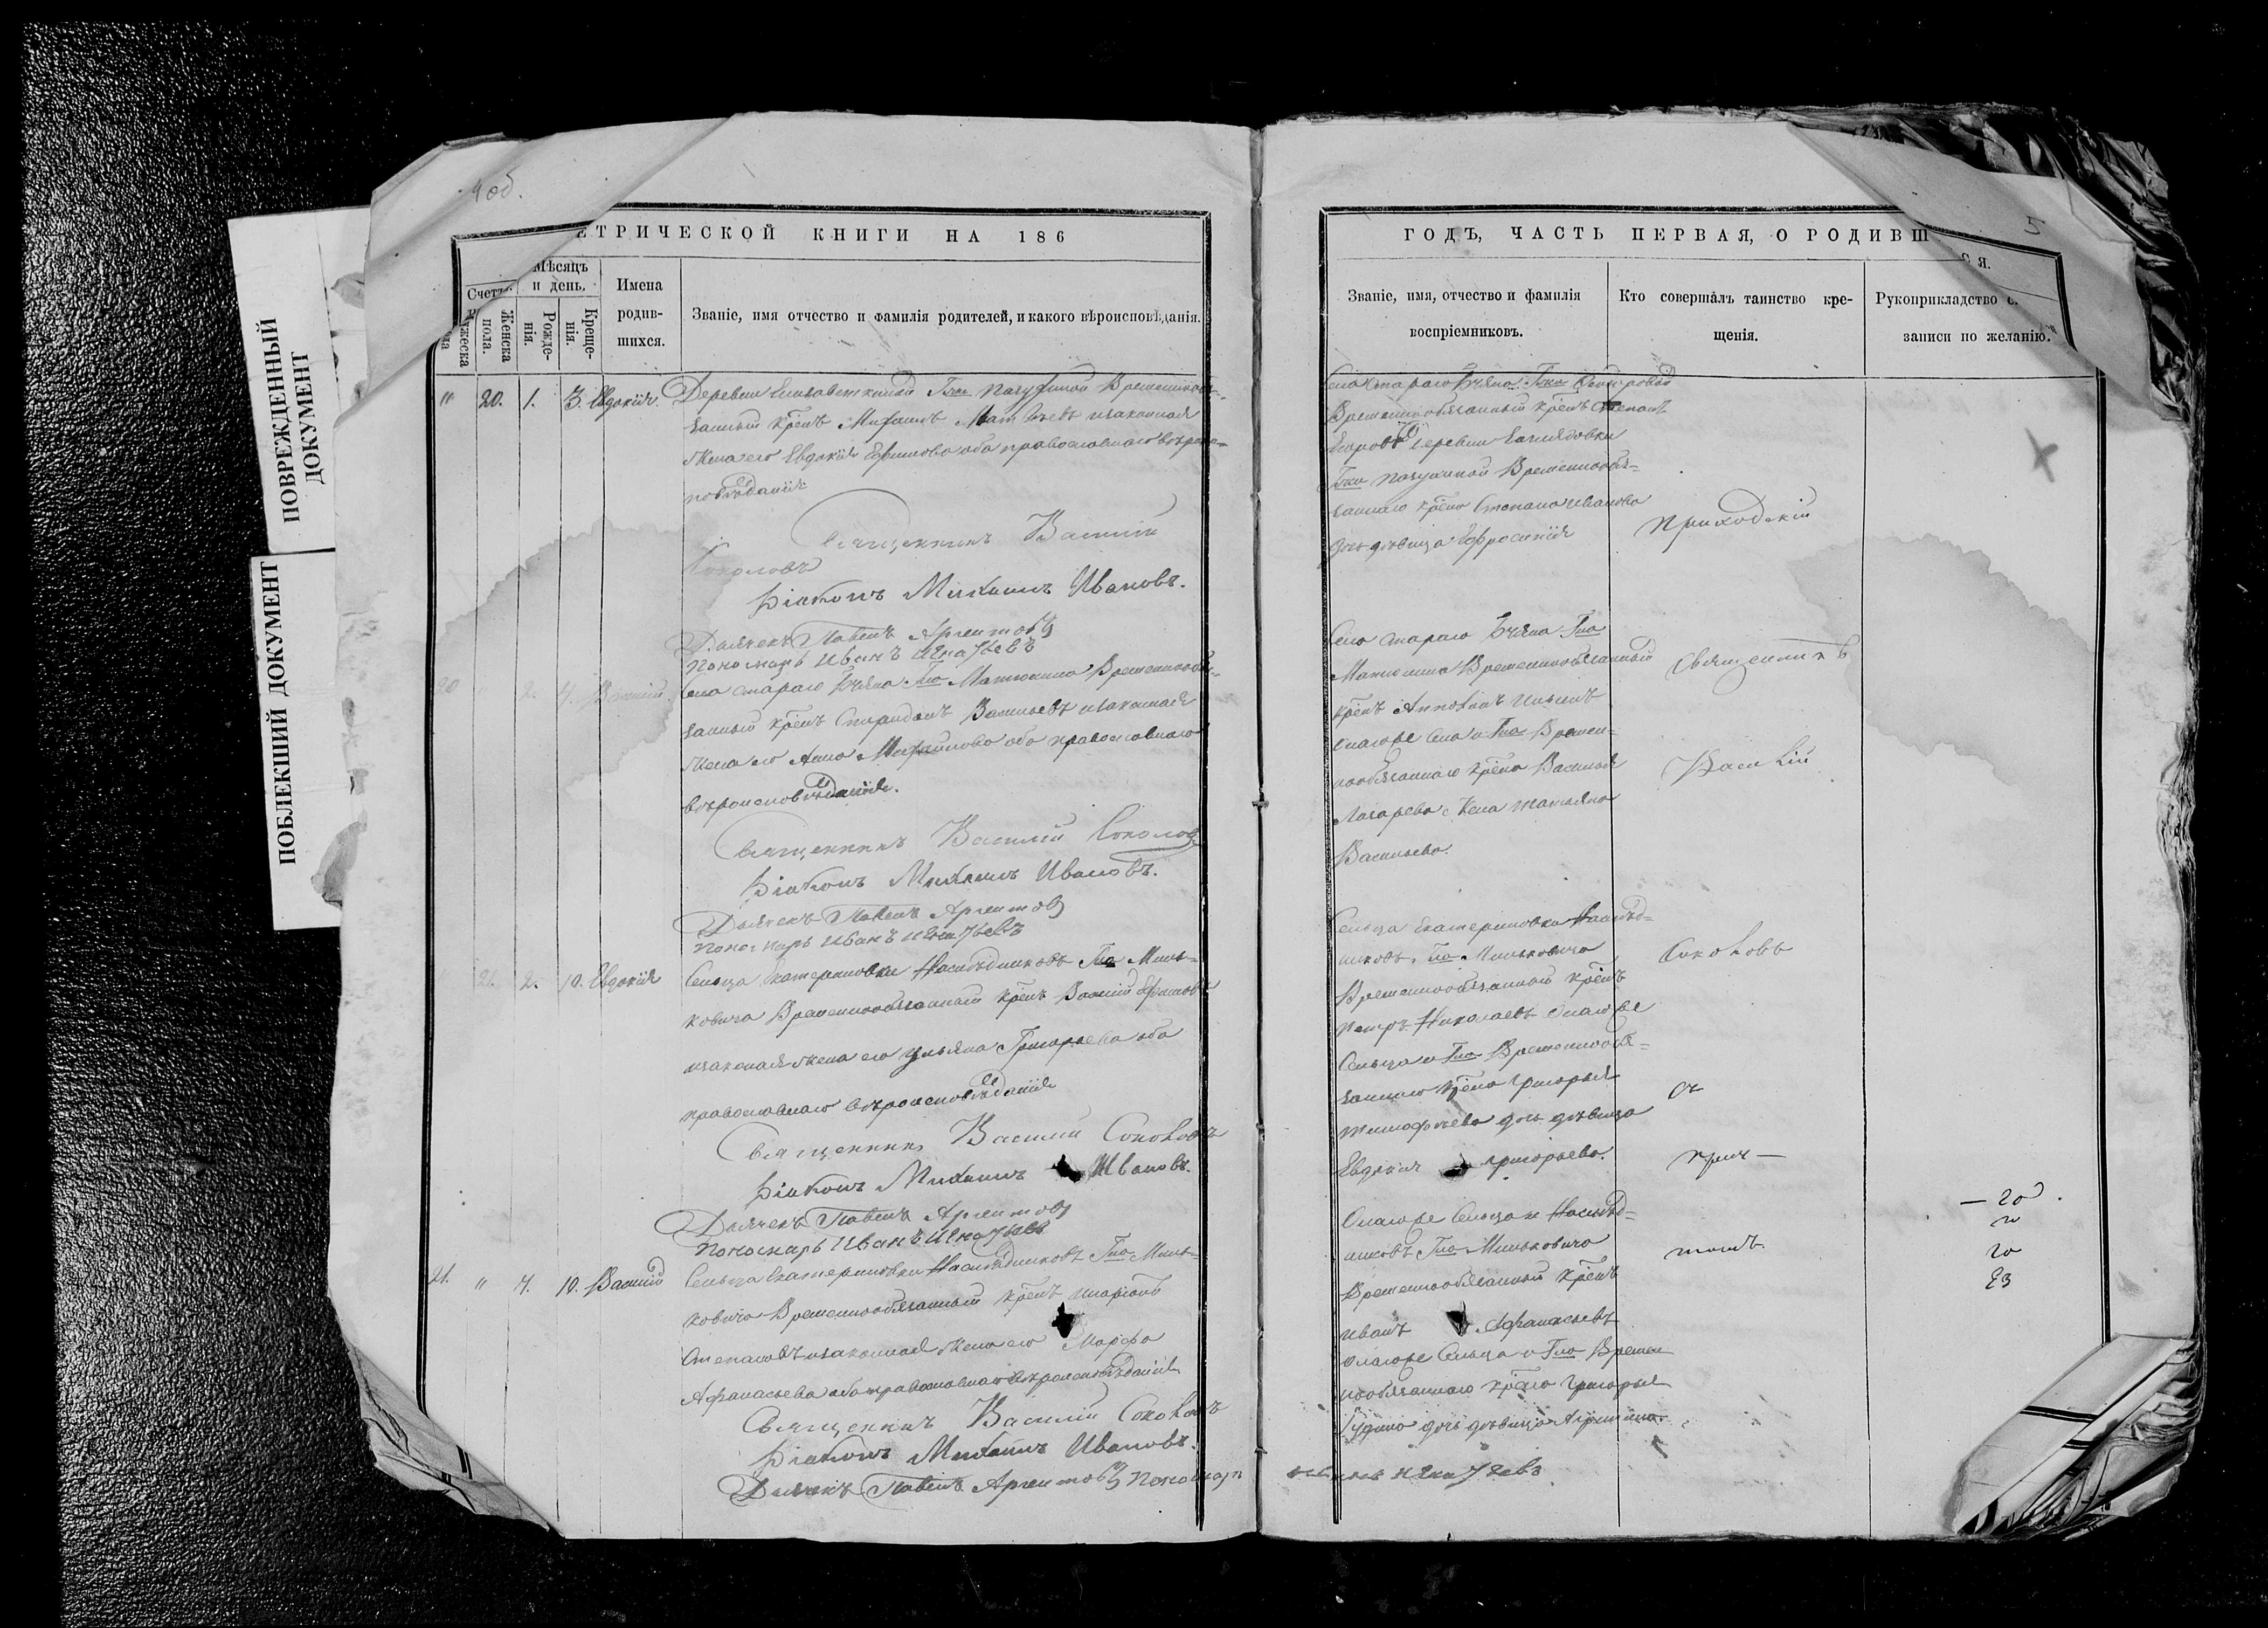 ПОВРЕЖДЕННЫЙ
ДОКУМЕНТ
ПОБЛЕКШИЙ ДОКУМЕНТ
4 об.
ЕТРИЧЕСКОЙ КНИГИ НА 186
Мѣсяцъ
и день.
Женска
пола.
Рожде-
нія.
Креще-
нія.
Имена
родив-
шихся.
Званіе, имя отчество и фамилія родителей, и какого вѣроисповѣданія.
" 20. 1. 3. Евдокія. Деревни Елизаветкиной Гжи
занный крѣнъ Михаилъ Матвѣевъ изаконная
жена его Евдокія Ефимова оба православнаго вѣроис-
повѣданія
Священникъ Василій
Соколовъ
Діаконъ Михаилъ Ивановъ.
Дьячекъ Павелъ Аргентовъ
Пономарь Иванъ Игнатьевъ
20 " 2. 4. Василій Села стараго Бчяна Гна Матюнина Временнообя-
занный крѣнъ Спиридонъ Васильевъ изаконная
жена его Анна оба православнаго
вѣроисповѣданія.
Священникъ Василій Соколовъ
Діаконъ Михаилъ Ивановъ.
Дьячекъ Павелъ Аргентовъ
Пономарь Иванъ Игнатьевъ
21. 2. 10. Евдокія Сельца Екатериновки Наслѣдниковъ Гна Миль-
ковича Временнообязанный крѣнъ Василій
изаконная жена его Ульяна Григорьева оба
православнаго вѣроисповѣданія
Священникъ Василій Соколовъ
Діаконъ Михаилъ Ивановъ.
Дьячекъ Павелъ Аргентовъ
Пономарь Иванъ Игнатьевъ
21. " 4. 10. Василій Сельца Екатериновки Наслѣдниковъ Гна Миль-
ковича Временнообязанный крѣнъ
Степановъ изаконная жена его Марфа
Афанасьева оба православнаго вѣроисповѣданія
Священникъ Василій Соколовъ
Діаконъ Михаилъ Ивановъ.
Дьячекъ Павелъ Аргентовъ Пономарь
5
ГОДЪ, ЧАСТЬ ПЕРВАЯ, О РОДИВШ
СЯ.
Званіе, имя, отчество и фамилія
воспріемниковъ.
Кто совершалъ таинство кре-
щенія.
Рукоприкладство
записи по желанію.
Села стараго Бчяна Гжи
Временнообязанный крѣнъ Степанъ
Егоровъ деревни
Гжи Временнообя-
заннаго крѣна Степана Иванова
дочь дѣвица Ефросинія
Приходскій
Села стараго Бчяна Гна
Матюнина Временнообязанный
крѣнъ Ильинъ
онагоже села и Гна Времен-
нообязаннаго крѣна Василья
Лазарева жена Татьяна
Васильева.
Священникъ
Василій
Сельца Екатериновки Наслѣд-
никовъ Гна Мильковича
Временнообязанный крѣнъ
Петръ Николаевъ онагоже
Сельца и Гна Временнообя-
заннаго крѣна Григорья
Тимофѣева дочь дѣвица
Евдокія Григорьева.
Соколовъ
съ
прич—
томъ.
Онагоже Сельца и Наслѣд-
никовъ Гна Мильковича
Временнообязанный крѣнъ
Иванъ Афанасьевъ
онагоже Сельца и Гна Времен
нообязаннаго крѣна Григорья
дочь дѣвица
Игнатьевъ
20
20
23